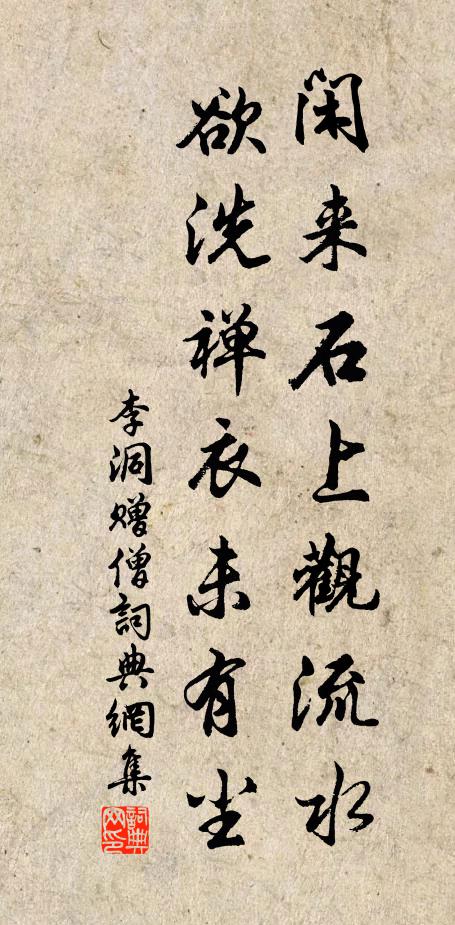 閑来石上觀流水
欲洗禅衣未有尘
李洞赠僧詞典網集
詞典网印